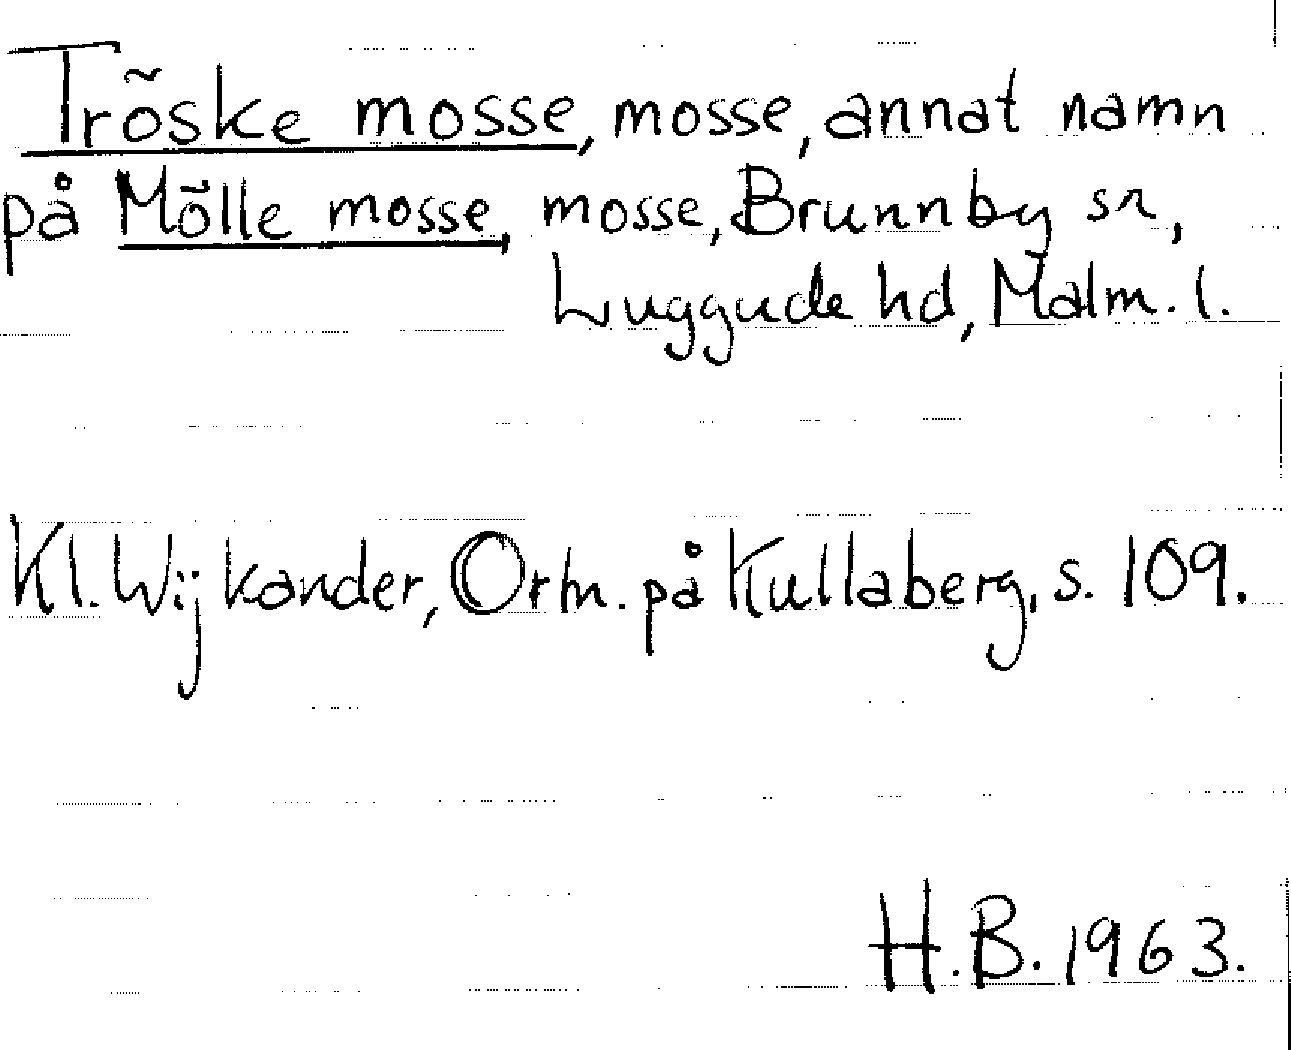 Tröske mosse, mosse, annat namn
på Mölle mosse, mosse, Brunnby sn,
Luggude hd, Malm. l.
Kl. Wijkander, Ortn. på Kullaberg, s. 109.
H.B. 1963.